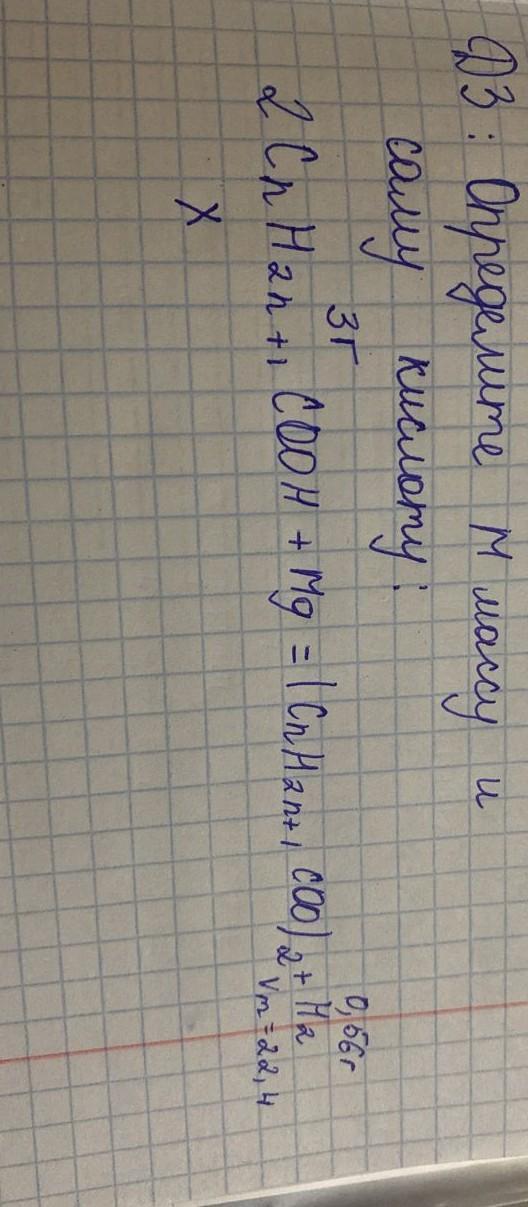 ДЗ: Определите M массу и
саму кислоту:
3г 0,56г
2CnH2n+1COOH + Mg = (CnH2n+1COO)2 + H2
x Vm = 22,4